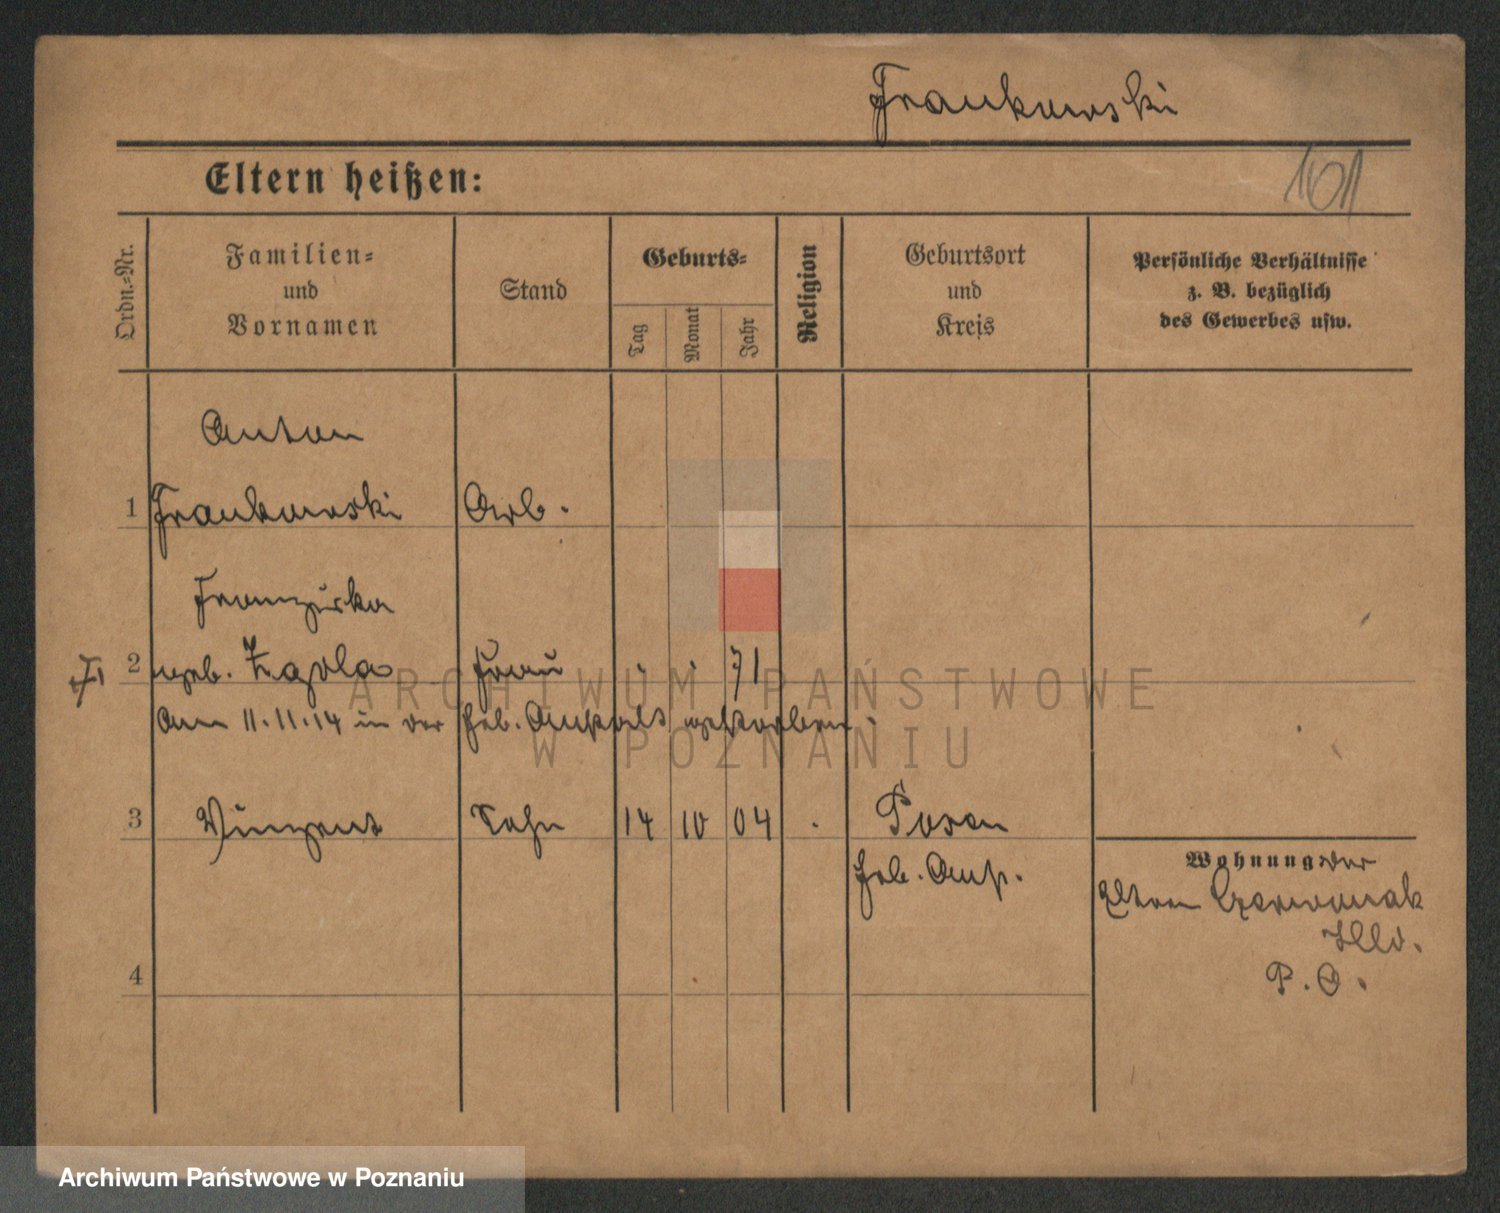 Frankowski
101
Eltern heißen:
Ordn.-Nr.
Familien-
und
Vornamen
Stand
Geburts-
Tag
Monat
Jahr
Religion
Geburtsort
und
Kreis
Persönliche Verhältnisse
z. B. bezüglich
des Gewerbes usw.
Anton
1 Frankowski Arb.
Franziska
2 geb. Frau 71
Am 11.11.14 in der Heb. Anstalt gestorben.
3 Vinzent Sohn 14 10 04 Posen
Heb. Anst.
Wohnung der
Eltern Czerwonak
P. O.
4
ARCHIWUM PAŃSTWOWE
W POZNANIU
Archiwum Państwowe w Poznaniu